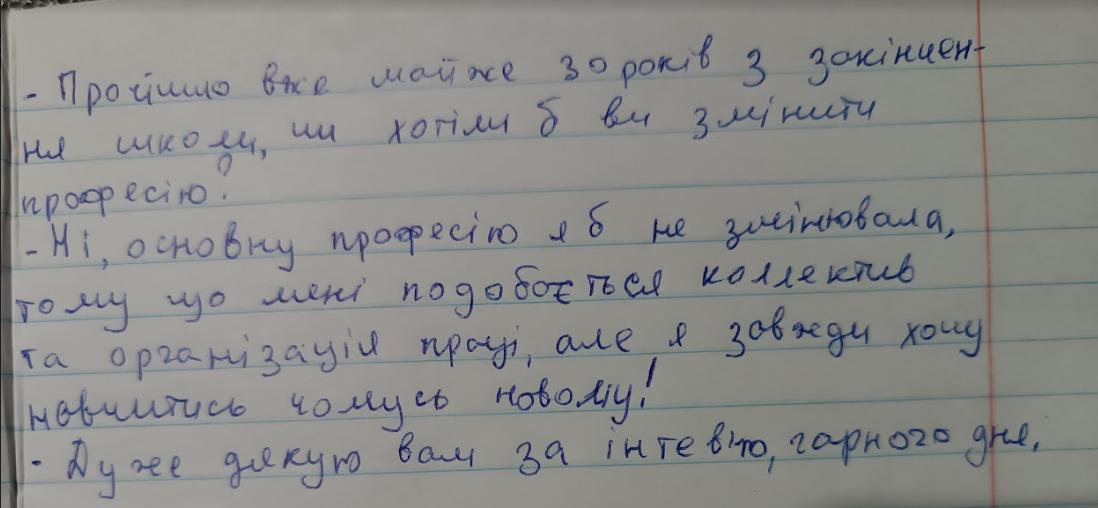 - Пройшло вже майже 30 років з закінчен-
ня школи, чи хотіли б ви змінити
професію?
- Ні, основну професію я б не змінювала,
тому що мені подобається коллектив
та організація праці, але я завжди хочу
навчитись чомусь новому!
- Дуже дякую вам за інтевʼю, гарного дня.